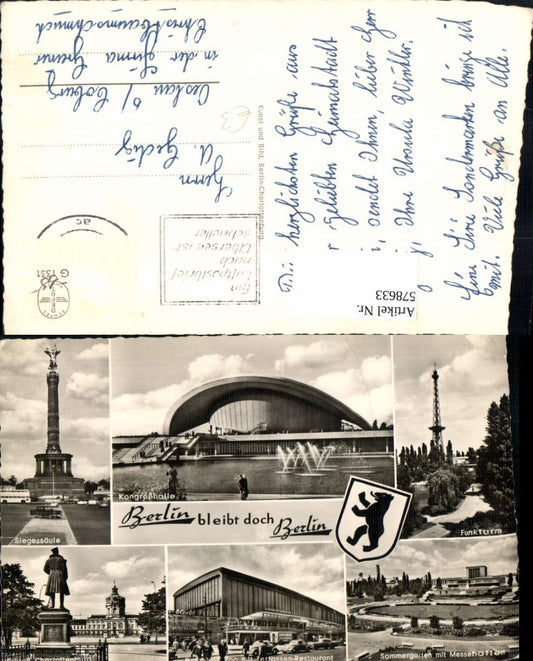 Die herzlichsten Grüße aus
r geliebten Heimatstadt
sendet Ihnen, lieber Herr
Ihre Ursula Winkler.
Eine Sondermarken bringe ich
mit. Viele Grüße an Alle.
Artikel Nr.
578633
Kunst und Bild, Berlin-Charlottenburg
Ein
Luftpostbrief
nach
Übersee ist
schneller
Herrn
A. Gedig
Oeslau b/ Coburg
in der Firma
G 1331
ac
£3
Siegessäule
Kongreßhalle
Funkturm
Berlin bleibt doch Berlin
Schloß Charlottenburg
mit Terrassen-Restaurant
Sommergarten mit Messehallen